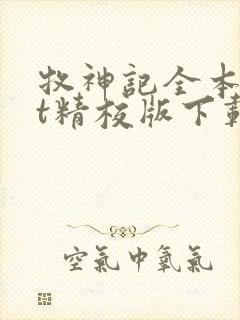 牧神記全本
t精校版下載
空氣中氧氣